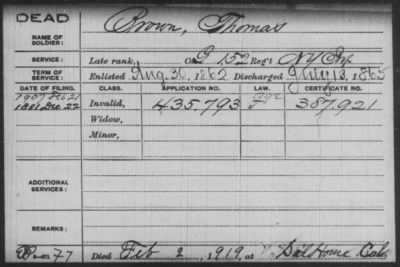 DEAD
NAME OF SOLDIER: Brown, Thomas
SERVICE: Late rank, Co G 152 Reg't N.Y. Inf
TERM OF SERVICE: Enlisted Aug. 30, 1862 Discharged July 13, 1865
DATE OF FILING. CLASS. APPLICATION NO. LAW. CERTIFICATE NO.
1907 Feb 21
1881 Dec 22 Invalid, 435.793 387.921
Widow,
Minor,
ADDITIONAL SERVICES:
REMARKS:
77 Died Feb 2, 1919, at Sol Home